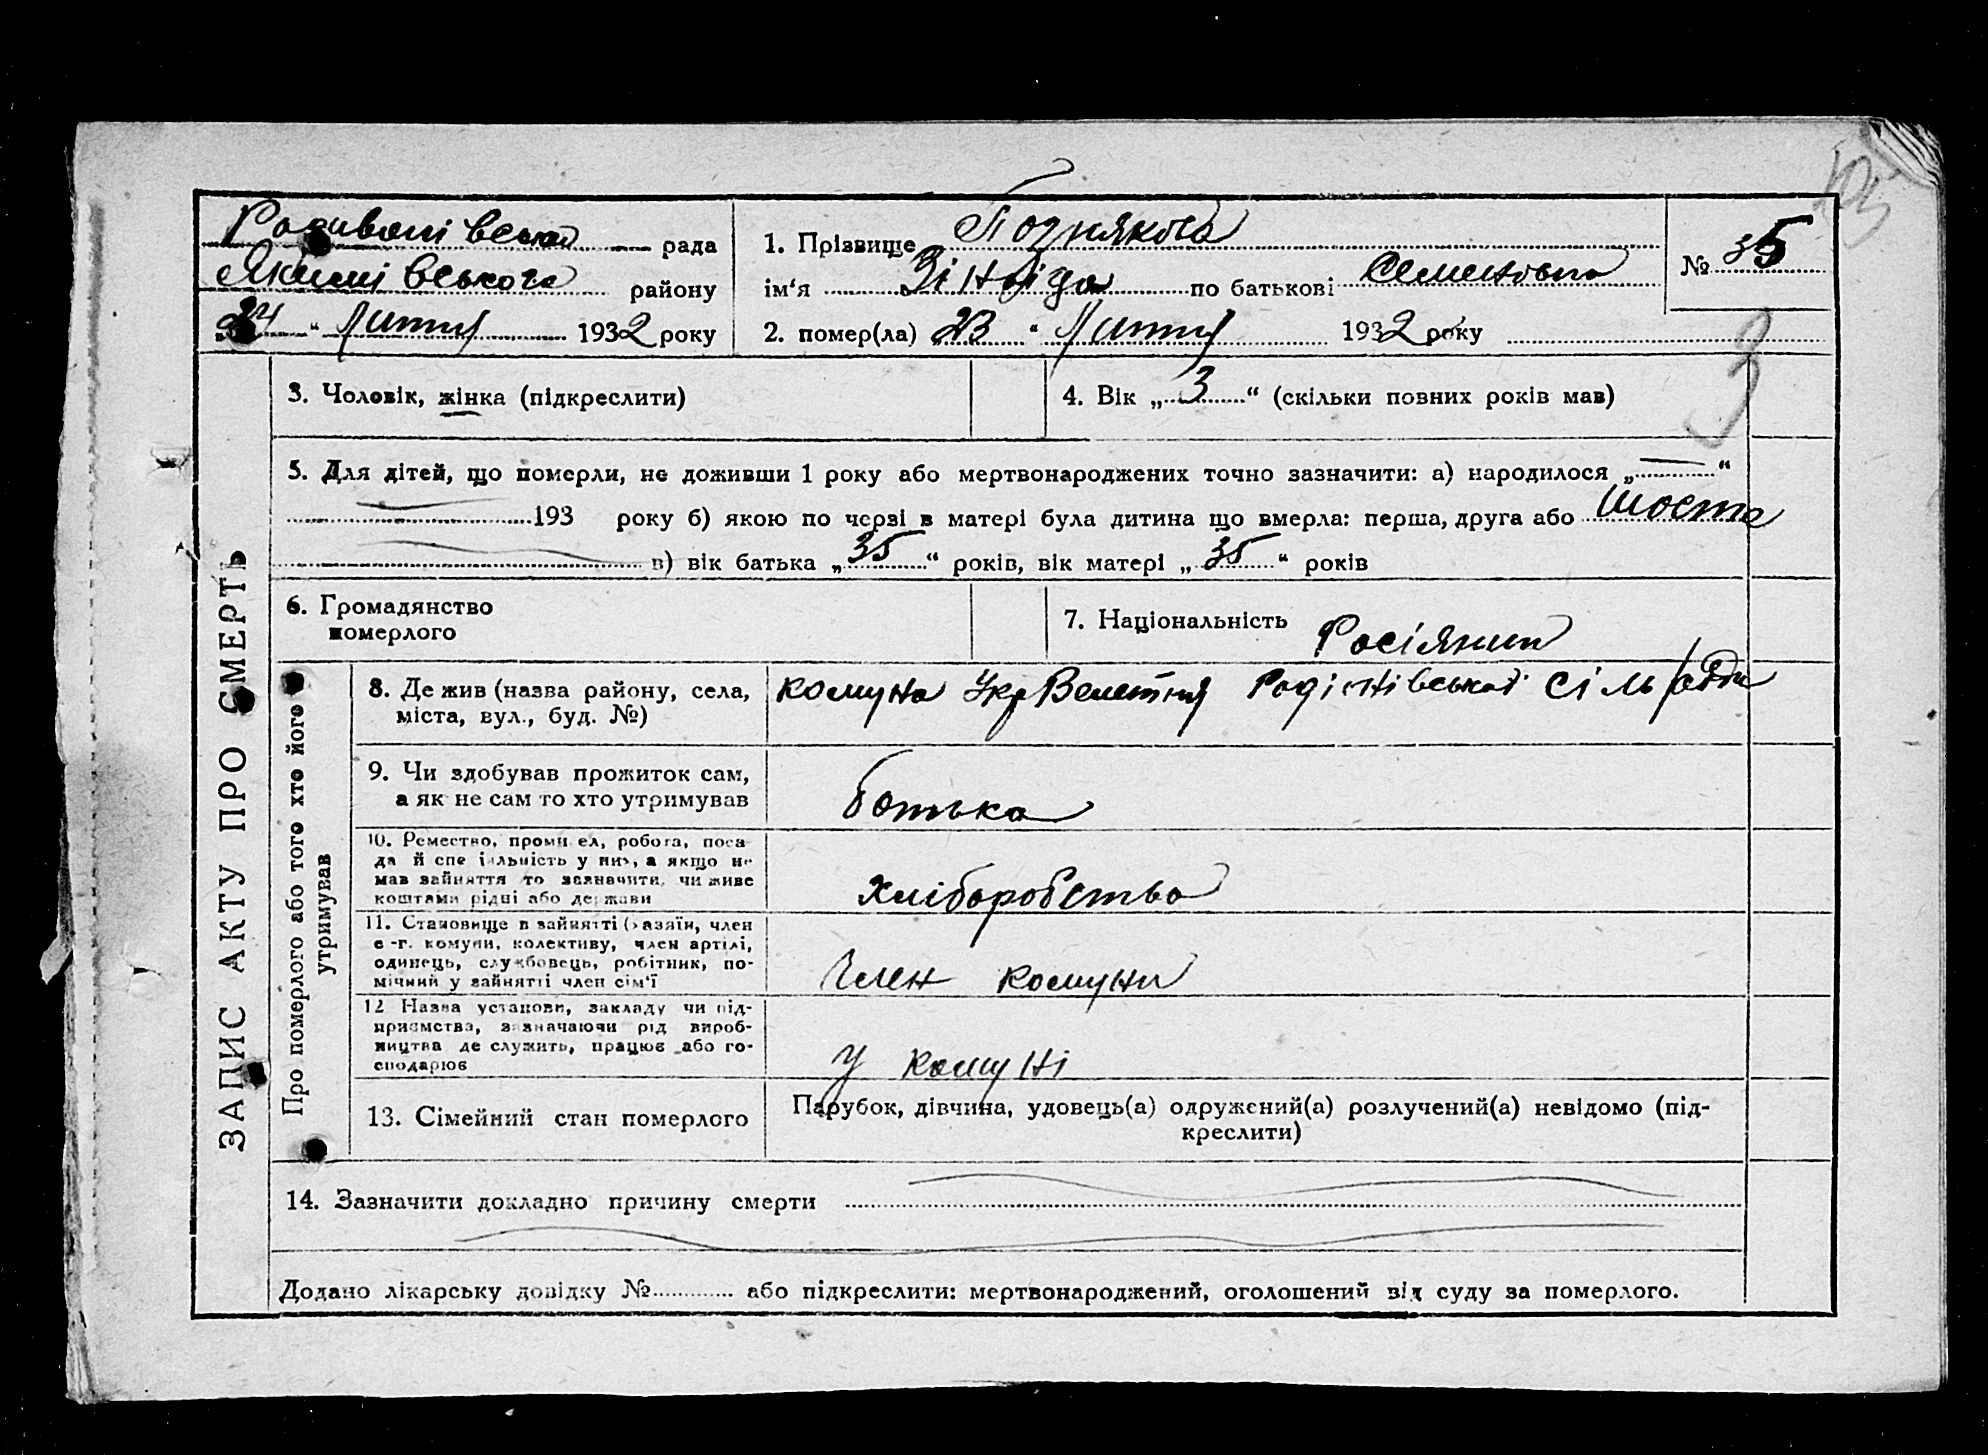 Радивонівська рада
Якимівського району
„24“ Лютий 1932 року
1. Прізвище Познякова
ім‘я Зінаїда по батькові Семеновна
2. помер(ла) 23 “ Лютий 1932 року
№ 35
3
3. Чоловік, жінка (підкреслити)
4. Вік „3“ (скільки повних років мав)
5. Для дітей, що померли, не доживши 1 року або мертвонароджених точно зазначити: а) народилося „—“
193 року б) якою по черзі в матері була дитина що вмерла: перша, друга або Шоста
в) вік батька „35“ років, вік матері „35“ років
6. Громадянство
померлого
7. Національність Росіянин
ЗАПИС АКТУ ПРО СМЕРТЬ
Про померлого або того хто його
утримував
8. Де жив (назва району, села,
міста, вул., буд. №)
комуна Сільради
9. Чи здобував прожиток сам,
а як не сам то хто утримував
батька
10. Ремество, промисел, робота, поса-
да й спеціяльність у них, а якщо не
мав зайняття то зазначити, чи живе
коштами рідні або держави
Хліборобство
11. Становище в зайнятті (хазяїн, член
с-г. комуни, колективу, член артілі,
одинець, службовець, робітник, по-
мічний у зайнятті член сім‘ї
Член комуни
12 Назва установи, закладу чи під-
приємства, зазначаючи рід вироб-
ництва де служить, працює або го-
сподарює
У комуні
13. Сімейний стан померлого
Парубок, дівчина, удовець(а) одружений(а) розлучений(а) невідомо (під-
креслити)
14. Зазначити докладно причину смерти
Додано лікарську довідку № або підкреслити: мертвонароджений, оголошений від суду за померлого.